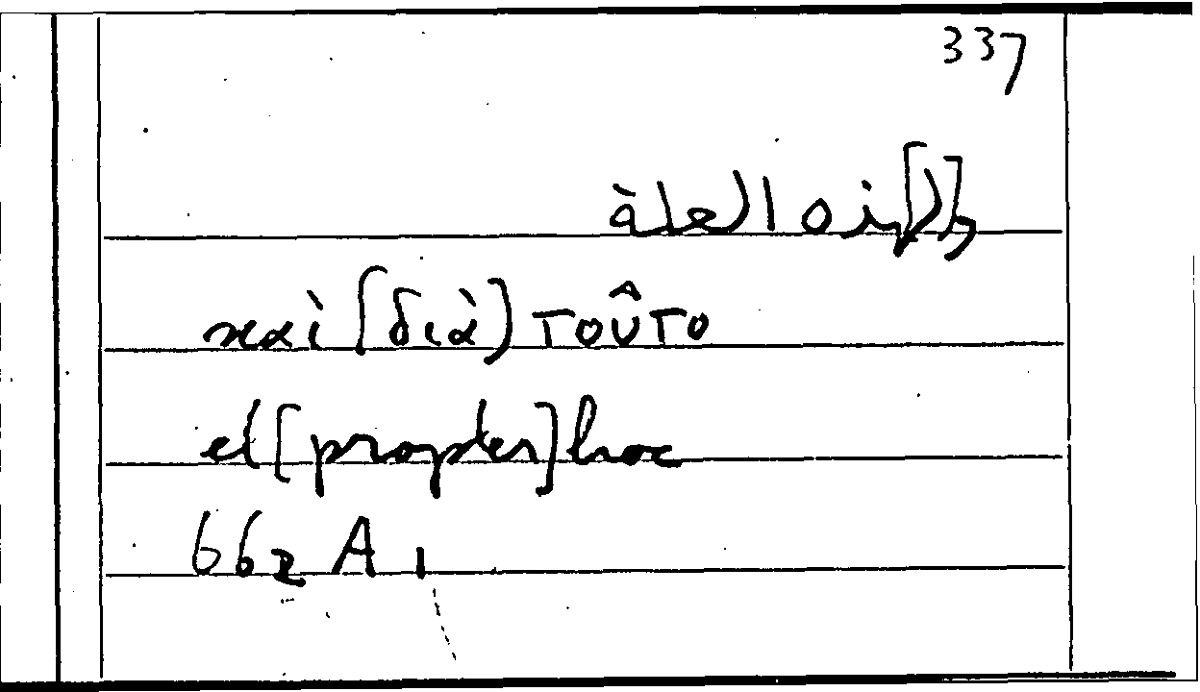 337
و[ل]هذه العلة
καὶ [διὰ) τοῦτο
et [propter] hoc
662 A 1